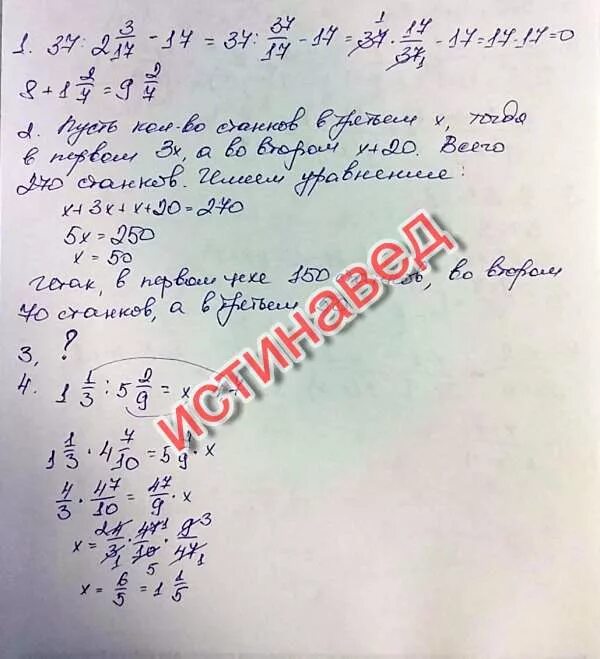 1. 37 : 2 3/17 - 17 = 37 : 37/17 - 17 = 37 · 17/37 - 17 = 17-17=0
8 + 1 2/7 = 9 2/7
2. Пусть кол-во станков в третьем x, тогда
в первом 3x, а во втором x+20. Всего
270 станков. Имеем уравнение:
x+3x+x+20=270
5x=250
x=50
Итак, в первом цехе 150 во втором
70 станков, а в третьем
3, ?
4. 1 1/3 : 5 2/9 = x
1 1/3 · 4 7/10 = 5 · x
4/3 · 47/10 = 47/9 · x
x = 4/3 · 47/10 · 9/47
x = 6/5 = 1 1/5
истинавед